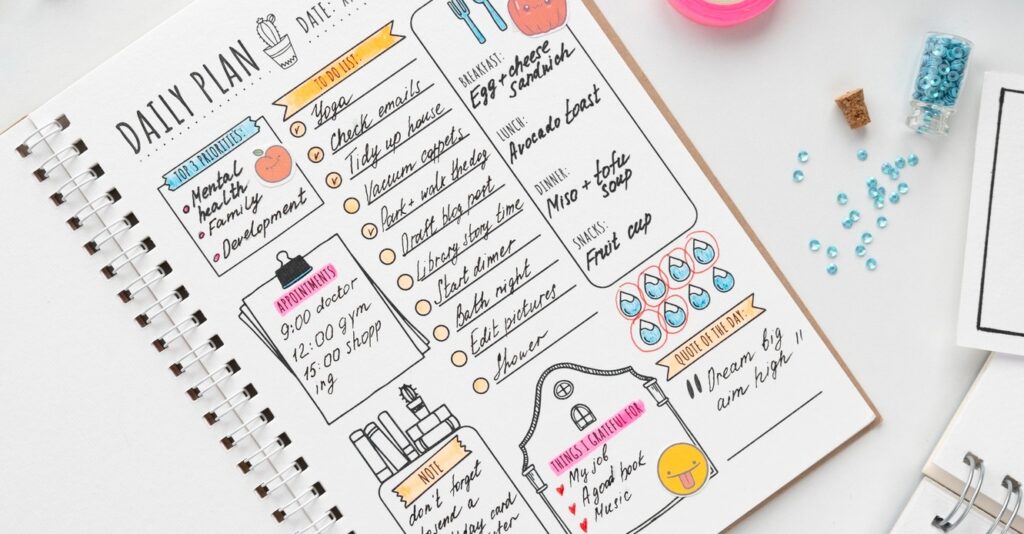 DAILY PLAN
DATE:
TOP 3 PRIORITIES:
Mental
health
Family
Development
APPOINTMENTS
9:00 doctor
12:00 gym
15:00 shopp
ing
NOTE
don't forget
send a
card
TO DO LIST:
Yoga
Check emails
Tidy up house
Vacuum carpets
Park + walk the dog
Draft blog post
Library story time
Start dinner
Bath night
Edit pictures
Shower
BREAKFAST:
Egg + cheese
sandwich
LUNCH:
Avocado toast
DINNER:
Miso + tofu
soup
SNACKS:
Fruit cup
QUOTE OF THE DAY:
"Dream big
aim high"
THINGS I GRATEFUL FOR
My job
A good book
Music